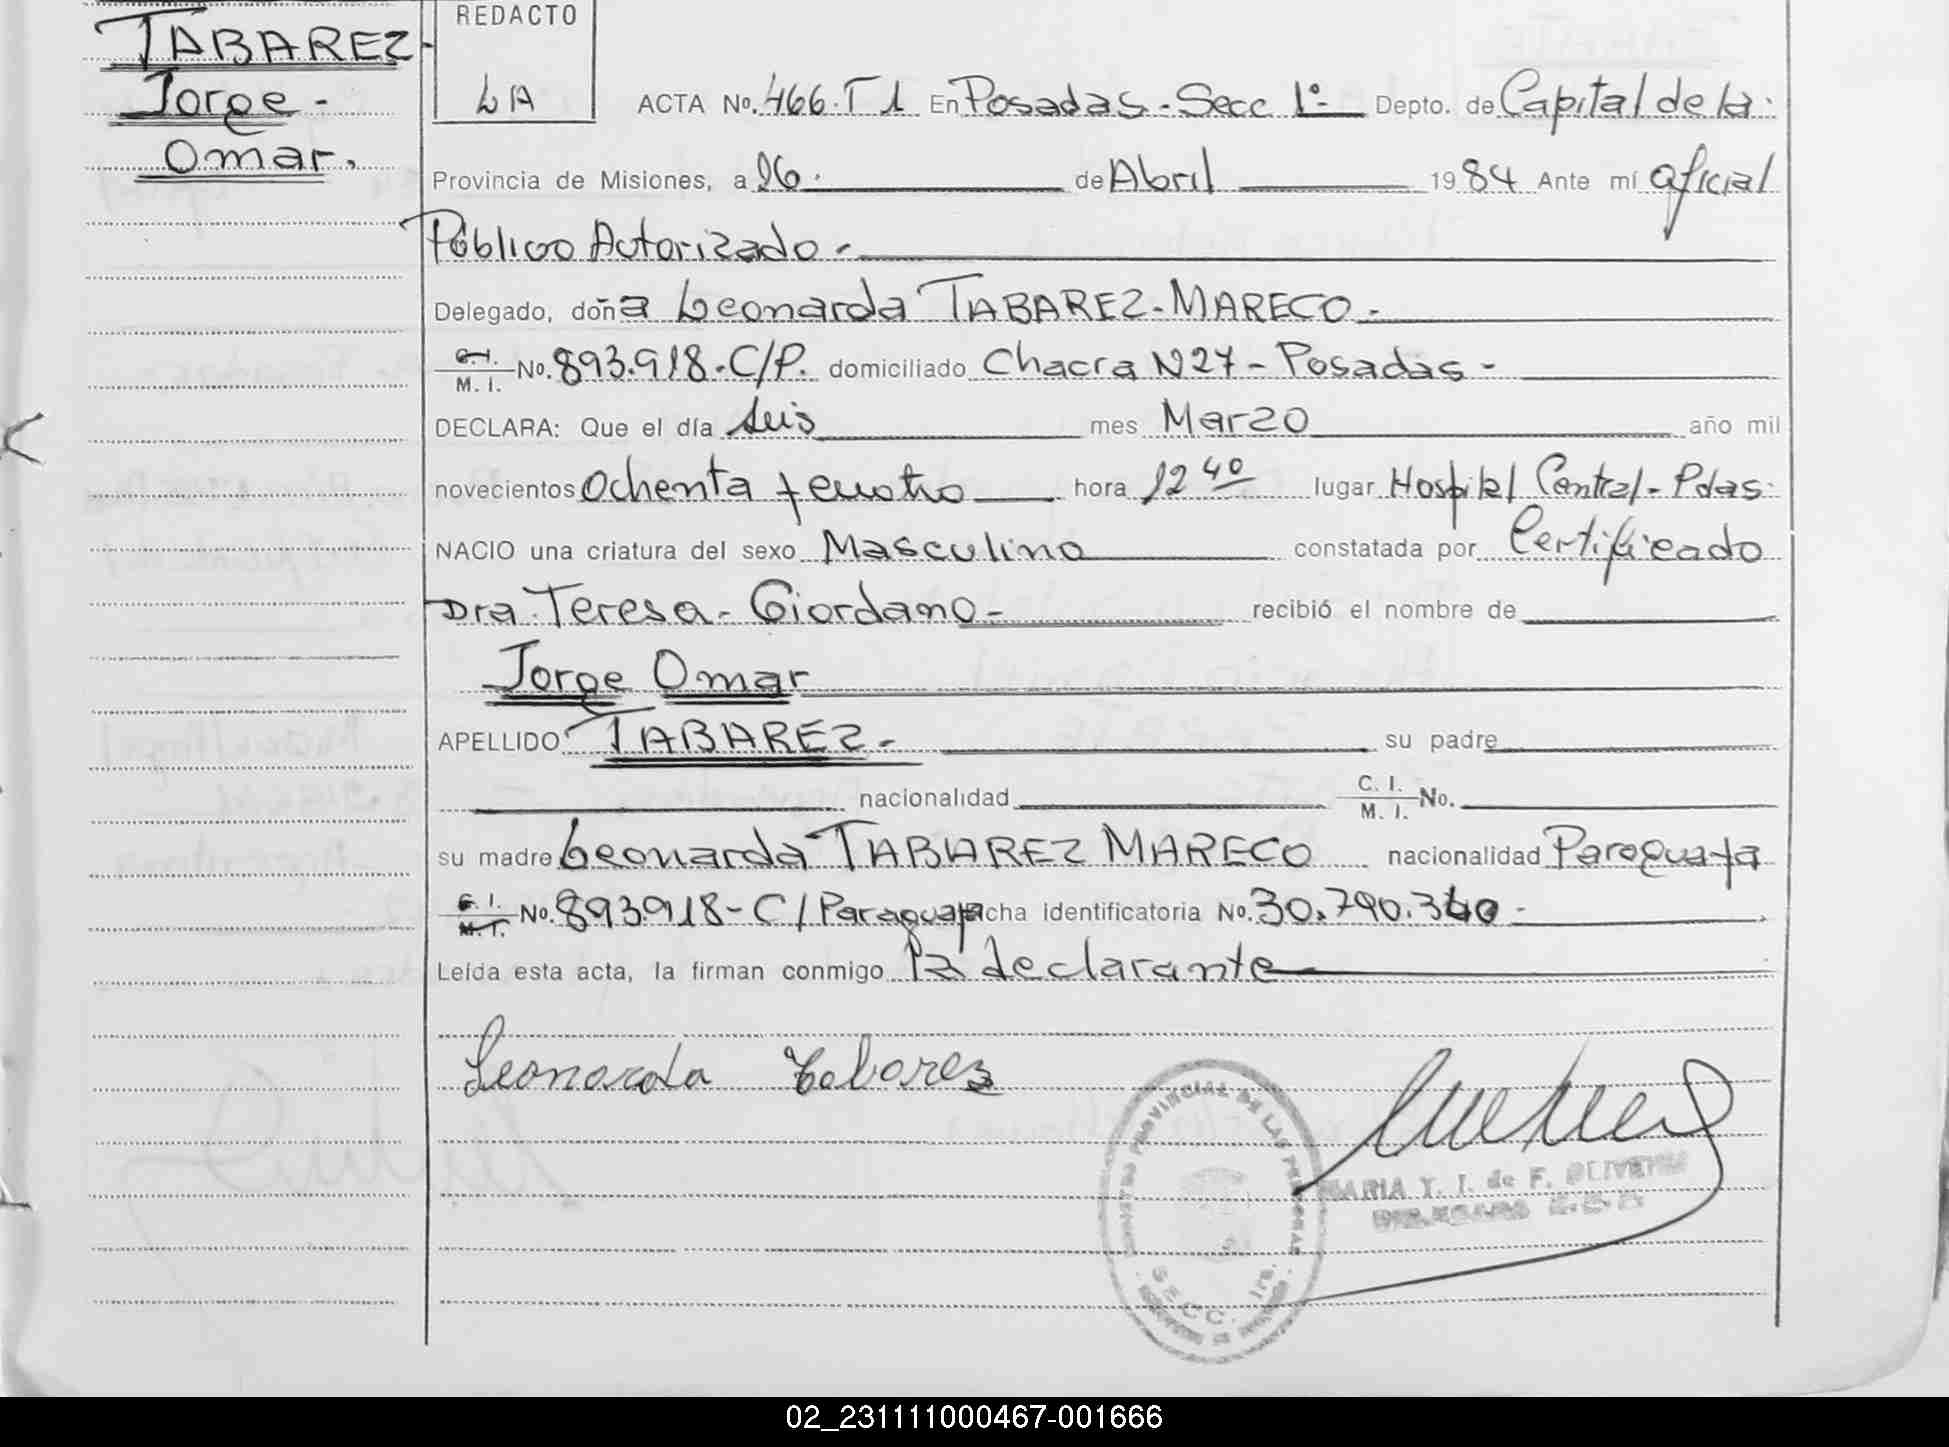 TABAREZ-
Jorge -
Omar.
REDACTO
LA
ACTA No. 466.T1 En Posadas - Secc 1° Depto. de Capital de la
Provincia de Misiones, a 26. de Abril 1984 Ante mí oficial
Público Autorizado -
Delegado, doña Leonarda TABAREZ - MARECO -
C. I. / M. I. No. 893.918 - C/P. domiciliado Chacra N27 - Posadas -
DECLARA: Que el día seis mes Marzo año mil
novecientos Ochenta y cuatro hora 12 40 lugar Hospital Central - Pdas
NACIO una criatura del sexo Masculino constatada por Certificado
Dra. Teresa - Giordano - recibió el nombre de
Jorge Omar
APELLIDO TABAREZ - su padre
nacionalidad C. I. / M. I. No.
su madre Leonarda TABAREZ MARECO nacionalidad Paraguaya
C. I. / M. I. No. 893918 - C/Paraguaya ficha identificatoria No. 30.790.340 -
Leída esta acta, la firman conmigo la declarante
Leonarda Tabarez
REGISTRO PROVINCIAL DE LAS PERSONAS
SECC. 1ra.
MARIA Y. I. de F. OLIVEIRA
02_231111000467-001666